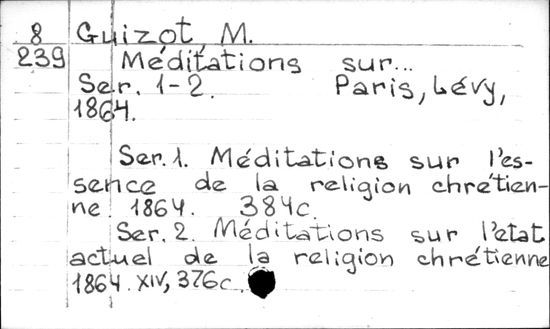 8 Guizot, M.
239 Méditations sur...
Ser. 1-2. Paris, Lévy,
1864.
Ser. 1. Méditations sur l'es-
sence de la religion chrétien-
ne. 1864. 384c.
Ser. 2. Méditations sur l'état
actuel de la religion chrétienne
1864. XIV, 376c.